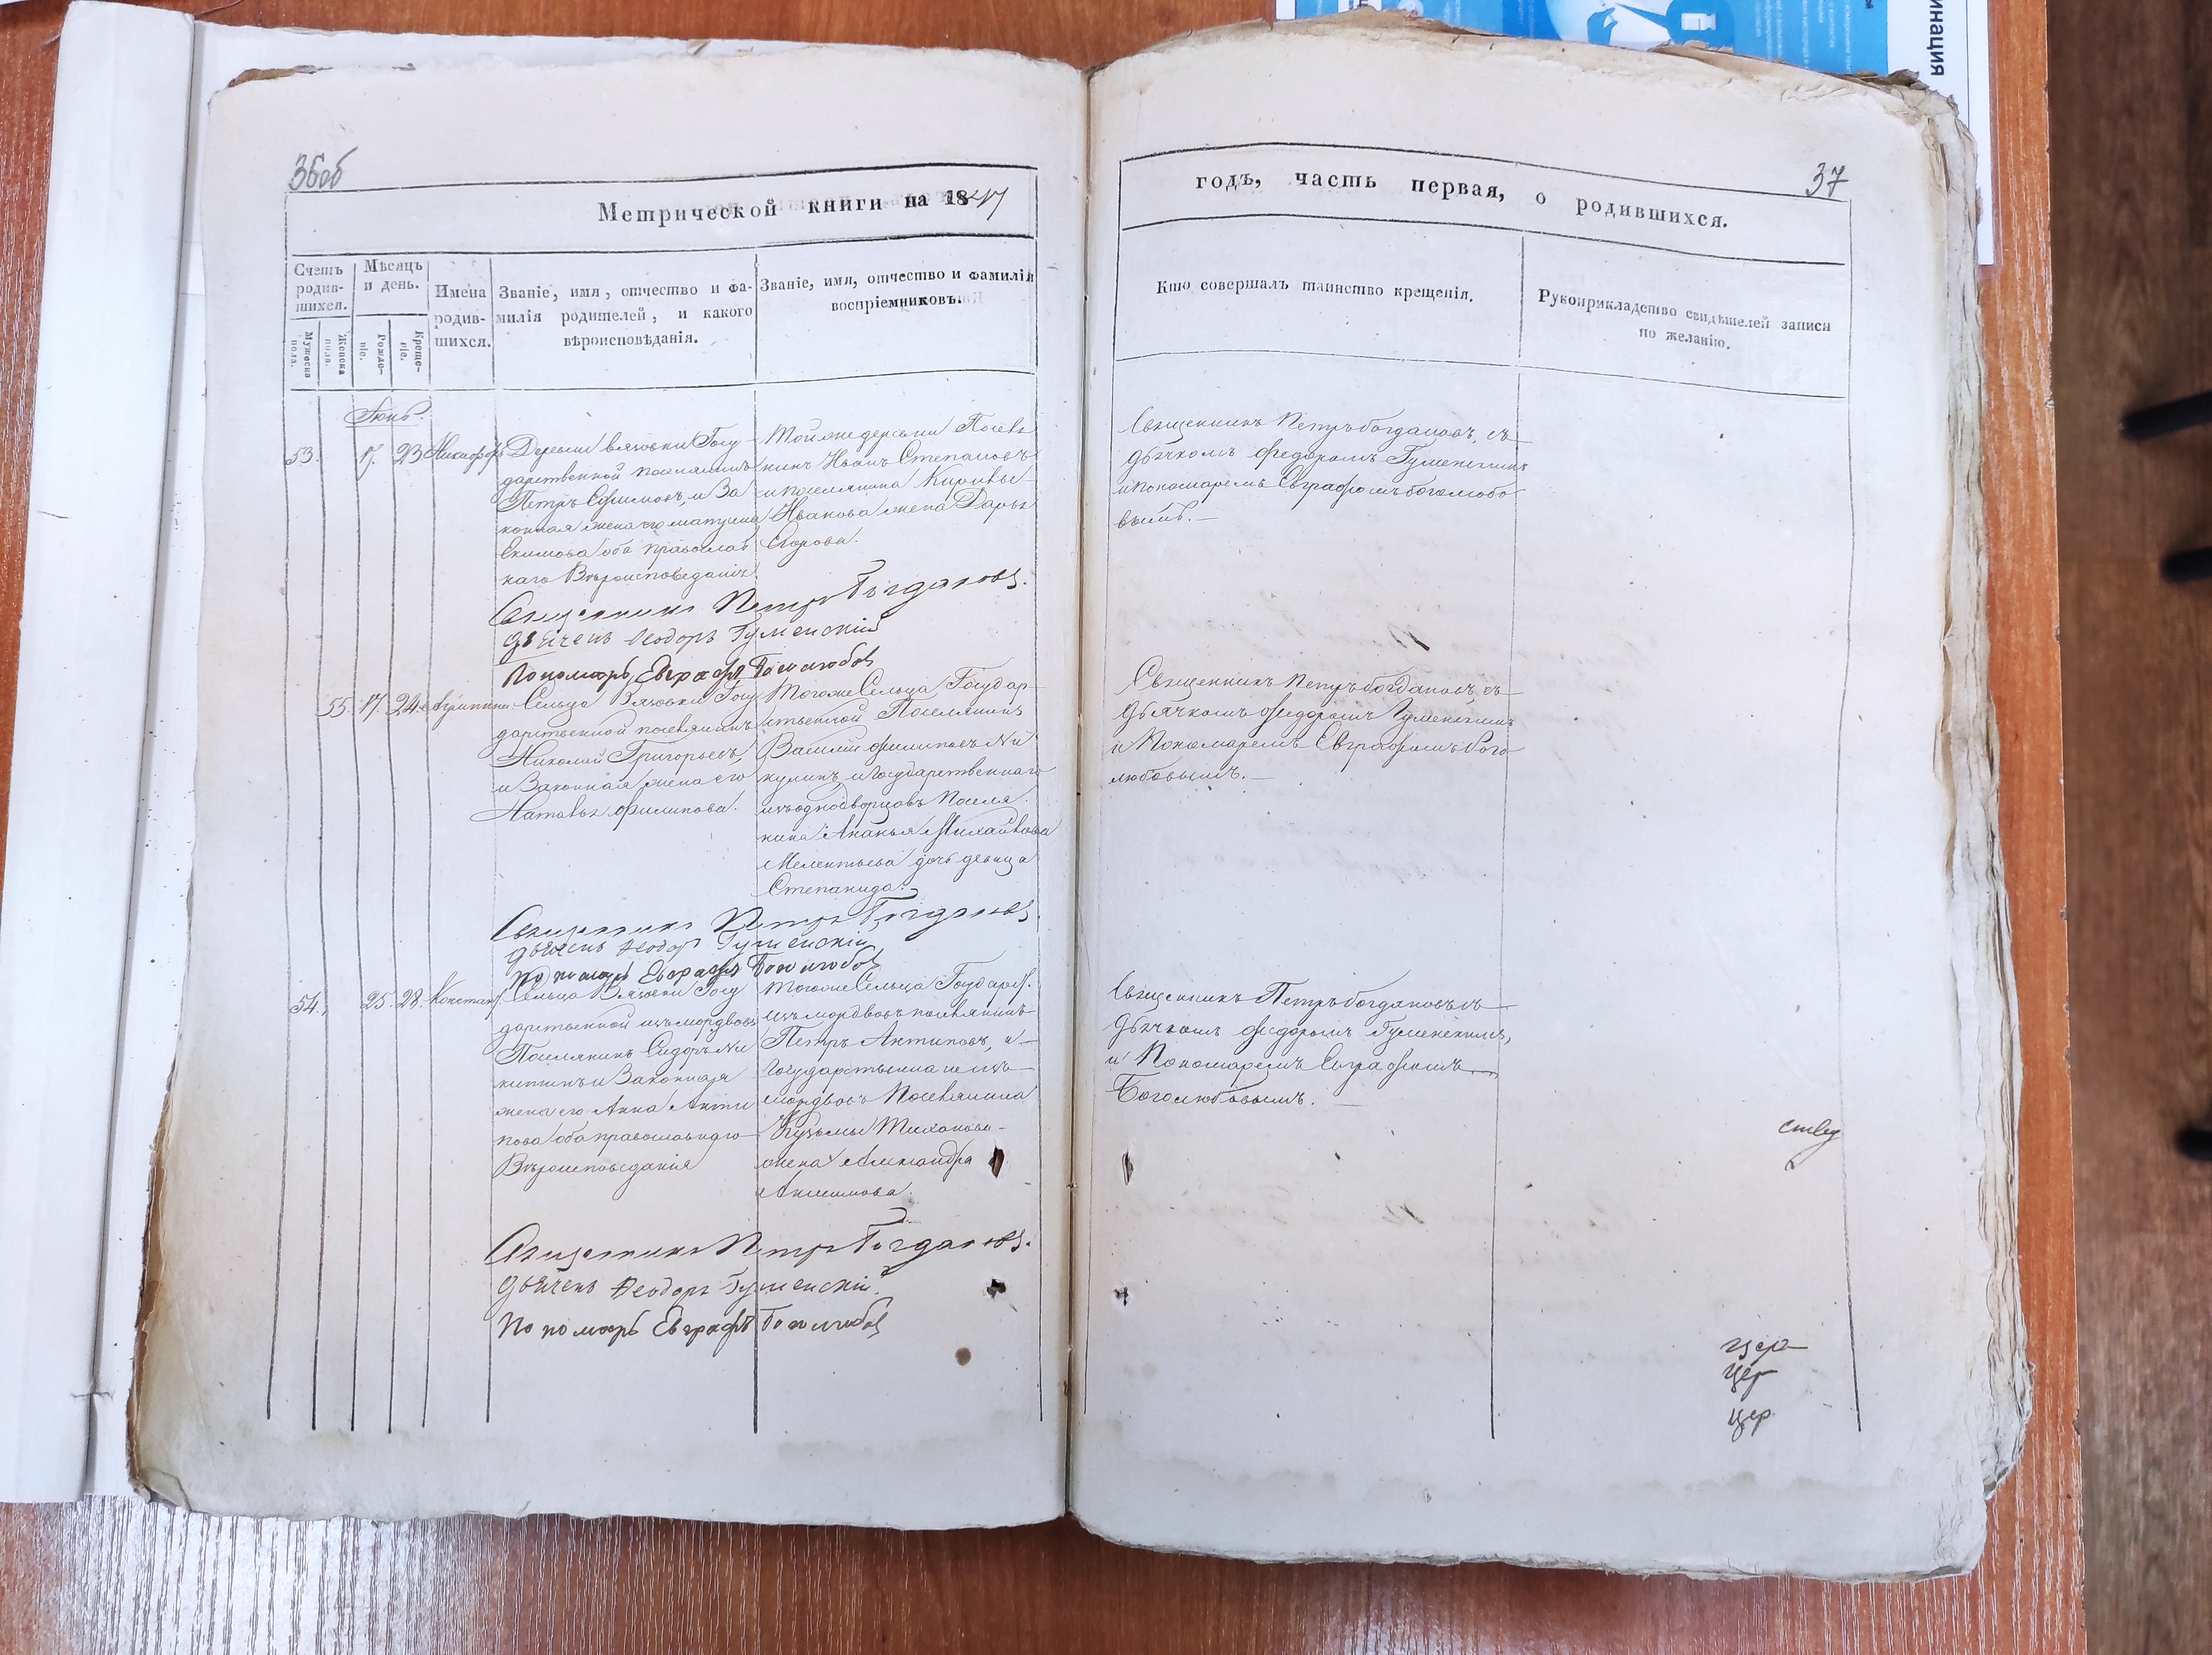 36об
Метрической книги на 1847
Счетъ родив-шихся.
Мужеска пола.
Женска пола.
Мѣсяцъ и день.
Рожде-ніе.
Креще-ніе.
Имена родив-шихся.
Званіе, имя, отчество и фа-
милія родителей, и какого
вѣроисповѣданія.
Званіе, имя, отчество и фамилія
воспріемниковъ.
Іюнь.
53. 17. 23 Никифоръ
Деревни Вязовки Госу
дарственной поселянинъ
Петръ Ефимовъ, и За
конная жена его
Екимова оба православ
наго Вѣроисповеданія.
Тойже деревни Поселя
нинъ Иванъ Степановъ
и поселянина
Иванова жена Дарья
Егорова.
Священникъ Петръ Богдановъ.
Дьячекъ Ѳеодоръ Гуменскій
Пономарь Евграфъ Боголюбовъ
55 17. 24
Сельца Вязовки Госу
дарственной поселянинъ
Николай Григорьевъ,
и Законная жена его
Наталья Филипова.
Тогоже Сельца Государ-
ственной Поселянинъ
Василий Филиповъ Ни
кулинъ, и Государственнаго
изъ однодворцовъ Поселя
нина Ананья Михайлова
Мелентьева дочь девица
Степанида.
Священникъ Петръ Богдановъ.
Дьячекъ Ѳеодоръ Гуменскій
Пономарь Евграфъ Боголюбовъ
54. 25 28.
Сельца Вязовки Госу
дарственной изъ мордвовъ
Поселянинъ Сидоръ Ни
китинъ и Законная
жена его Анна Анти
пова оба православнаго
Вѣроисповеданія
Тогоже Сельца Государ.
изъ мордвовъ поселянинъ
Петръ Антиповъ, и
Государственна изъ
мордвовъ Поселянина
Кузьмы Тихонова
жена Александра
Священникъ Петръ Богдановъ.
Дьячекъ Ѳеодоръ Гуменскій.
Пономарь Евграфъ Боголюбовъ
37
годъ, часть первая, о родившихся.
Кто совершалъ таинство крещенія.
Рукоприкладство свидѣтелей записи
по желанію.
Священникъ Петръ Богдановъ, съ
дьячкомъ Федоромъ Гуменскимъ
и пономаремъ Евграфомъ Боголюбо
вымъ.
Священникъ Петръ Богдановъ, съ
дьячкомъ Федоромъ Гуменскимъ
и Пономаремъ Евграфомъ Бого
любовымъ.
Священникъ Петръ Богдановъ съ
дьячкомъ Федоромъ Гуменскимъ,
и Пономаремъ Евграфомъ
Боголюбовымъ.
цер
цер
цер
инация